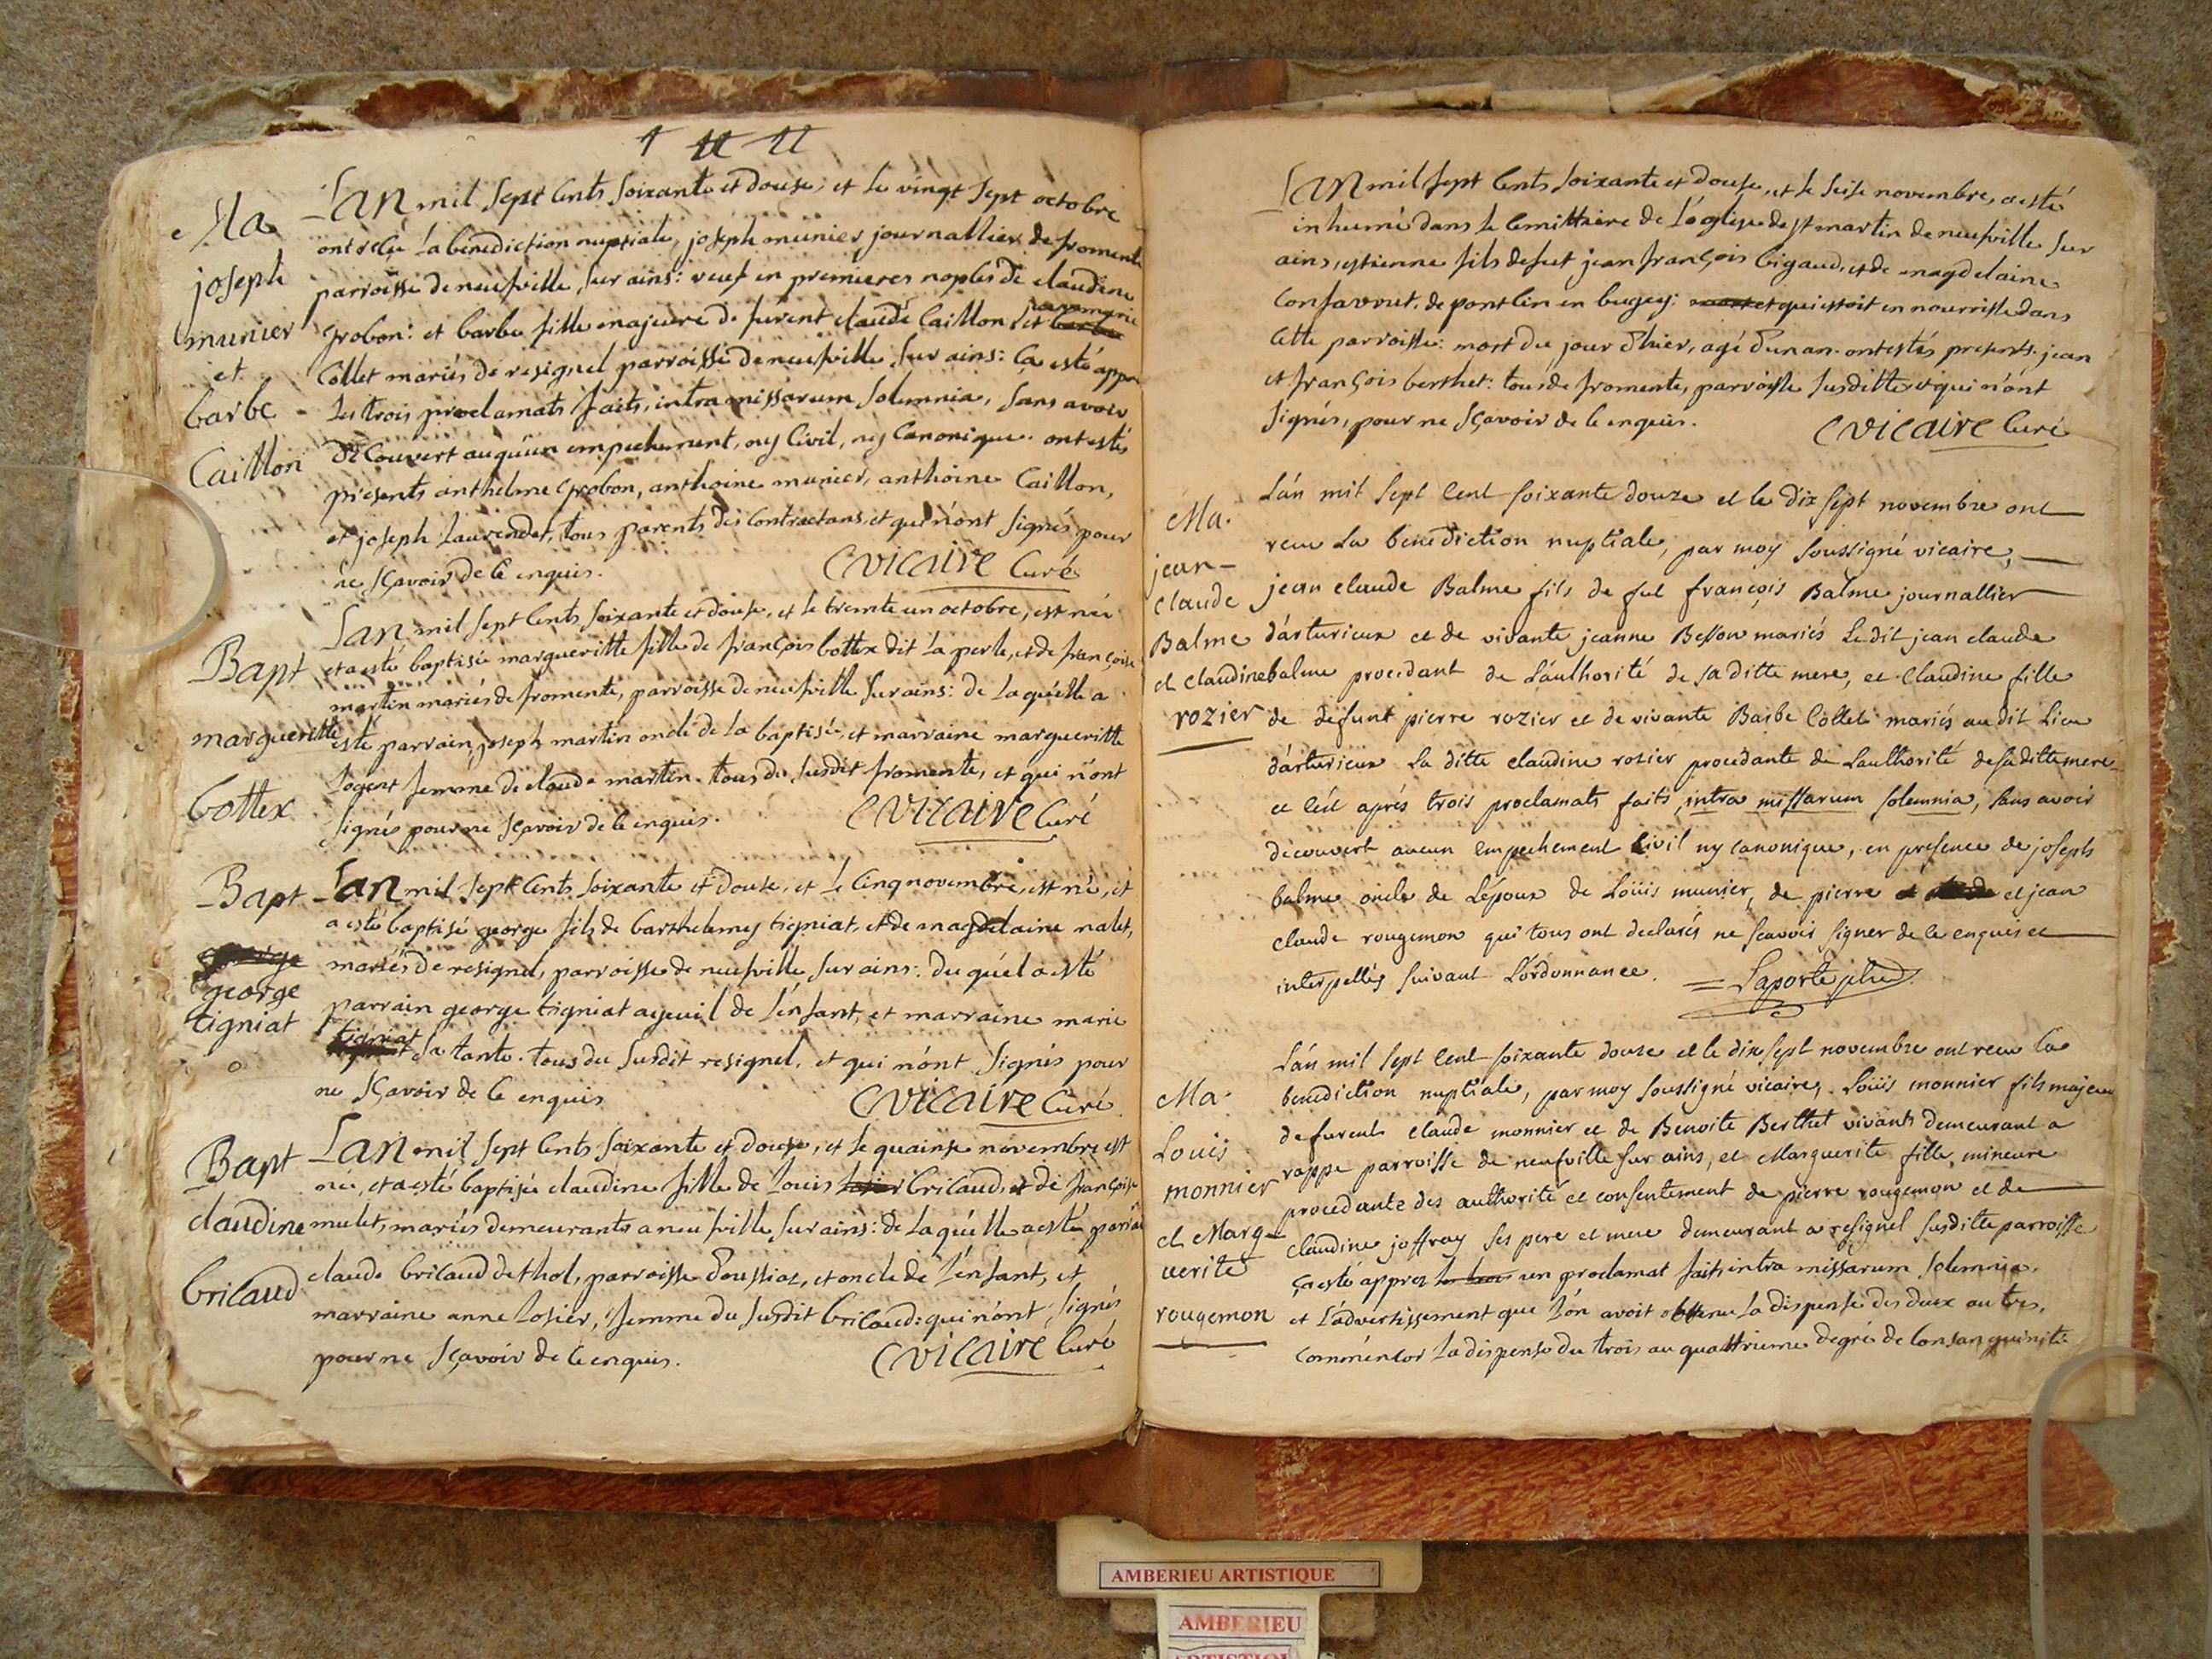 Ma
joseph
munier
et
barbe
Caillon
Lan mil sept Cents soixante et douse, et le vingt sept octobre
ont reçu la bénediction nuptiale, joseph munier journallier de fromente
parroisse de neufville sur ains: veuf en premieres nopces de claudine
grobon: et barbe fille majeure de furent claude Caillon, et
Collet mariés de resignel parroisse de neufville sur ains: Ca esté appres
les trois proclamats faits, intra missarum solemnia, sans avoir
découvert auqu'un empechement, ny Civil, ny Canonique. ont estés
présents anthelme grobon, anthoine munier, anthoine Caillon,
et joseph laurendet, tous parents des Contractans, et qui n'ont signés pour
ne sçavoir de ce enquis. Cvicaire Curé
Bapt
margueritte
bottex
Lan mil sept Cents soixante et douse, et le trente un octobre, est née
et a esté baptisée margueritte fille de françois bottex dit la perle, et de françoise
martin mariés de fromente, parroisse de neufville sur ains: de laquelle a
esté parrain joseph martin oncle de la baptisée, et marraine margueritte
femme de claude martin. tous du susdit fromente, et qui n'ont
signés pour ne sçavoir de ce enquis. Cvicaire Curé
Bapt
george
tigniat
Lan mil sept Cents soixante et douse, et le Cinq novembre, est né, et
a esté baptisé george fils de barthelemy tigniat, et de magdelaine nalet,
mariés de resignel, parroisse de neufville sur ains: du quel a esté
parrain george tigniat ayeuil de l'enfant, et marraine marie
tigniat sa tante. tous du susdit resignel, et qui n'ont signés pour
ne sçavoir de ce enquis Cvicaire Curé
Bapt
claudine
bricaud
Lan mil sept Cents soixante et douse, et le quainse novembre est
née, et a esté baptisée claudine fille de Louis bricaud, et de françoise
mulet, mariés demeurants a neufville sur ains: de laquelle a esté parrain
claude bricaud de thol, parroisse d'oussiat, et oncle de l'enfant, et
marraine anne losier, femme du susdit bricaud: qui n'ont signés
pour ne sçavoir de ce enquis. Cvicaire Curé
Lan mil sept Cents soixante et douse, et le seise novembre, a esté
inhumé dans le Cemitiere de l'église de st martin de neufville sur
ains, estienne fils de fut jean françois bigaud, et de magdelaine
Confavrut, de pont Cin en bugey: et qui estoit en nourrisse dans
Cette parroisse: mort du jour d'hier, agé d'un an. ont estés presents, jean
et françois berthet: tous de fromente, parroisse susditte et qui n'ont
signés, pour ne sçavoir de ce enquis. Cvicaire Curé
Ma.
jean-
Claude
Balme
et claudine
rozier
L'an mil sept cent soixante douze et le dix sept novembre ont
recu La benediction nuptiale, par moy soussigné vicaire,
jean claude Balme fils de fut françois Balme journallier
d'arturieux et de vivante jeanne Besson mariés Ledit jean claude
balme procedant de L'authorité de sa ditte mere, et Claudine fille
de defunt pierre rozier et de vivante Barbe Collet mariés au dit Lieu
d'arturieux La ditte claudine rozier procedante de Lauthorité de sa ditte mere
et c'est aprés trois proclamats faits, intra missarum solemnia, sans avoir
découvert aucun empechement Civil ny canonique, en presence de joseph
balme oncle de L'époux de Loüis munier, de pierre et jean
claude rougemon qui tous ont declarés ne scavoir signer de ce enquis et
interpellés suivant L'ordonnance. = Laporte
Ma.
Louis
monnier
et Marg-
uerite
rougemon
L'an mil sept cent soixante douze et le dix sept novembre ont recu la
benediction nuptiale, par moy soussigné vicaire, Loüis monnier fils majeur
de furent Claude monnier et de Benoite Berthet vivants demeurant a
rappe parroisse de neufville sur ains, et Marguerite fille mineure
procedante des authorité et consentement de pierre rougemon et de
claudine joffray ses pere et mere demeurant a resignel susditte parroisse
Ca esté appres un proclamat fait intra missarum solemnia.
et L'advertissement que l'on avoit obtenu la dispense des deux autres,
la dispense du trois au quattrieme degrée de Consanguinité
AMBERIEU ARTISTIQUE
AMBERIEU
ARTISTIQUE